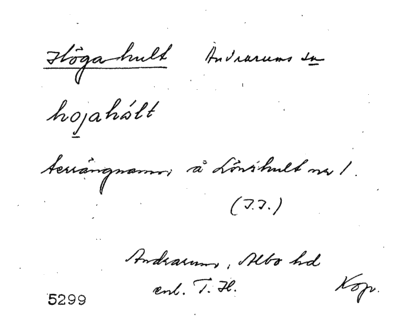 Högahult Andrarums sn
hojahólt
terrängnamn å Lönhult nr 1.
(J.J.)
Andrarum, Albo hd
enl. T. H. Kop.
5299